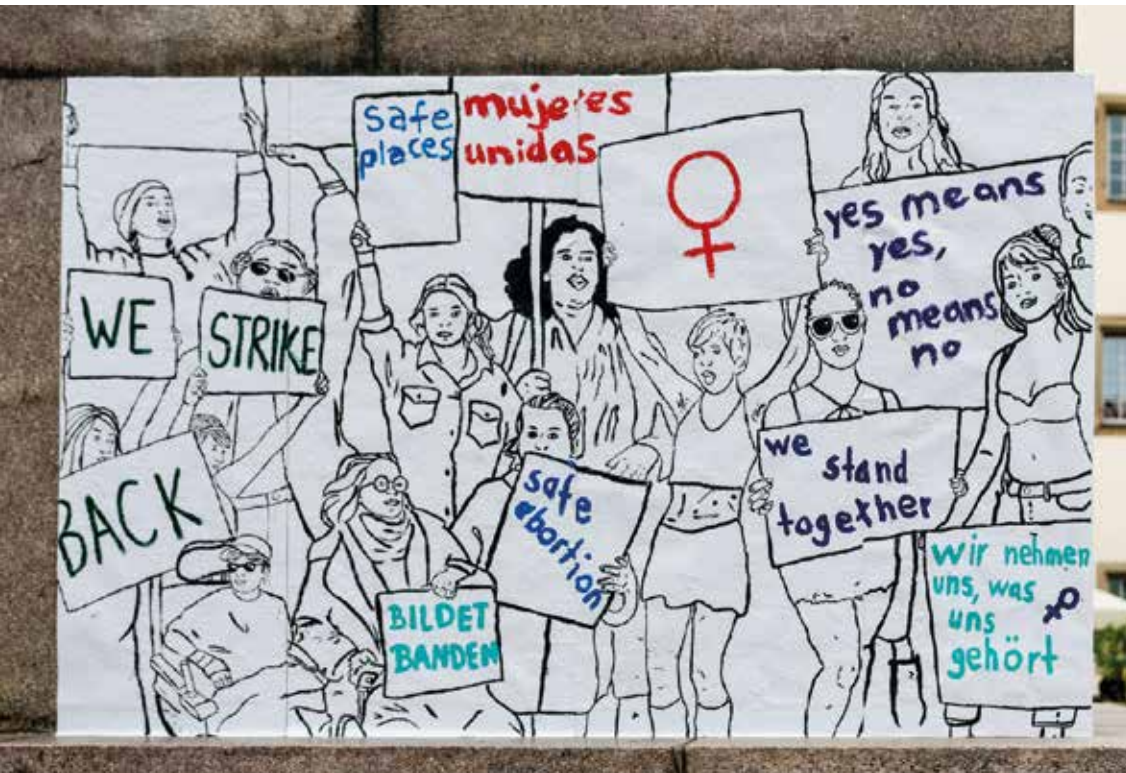 safe
places
mujeres
unidas
yes means
yes,
no
means
no
WE
STRIKE
BACK
we
stand
together
safe
abortion
BILDET
BANDEN
wir nehmen
uns, was
uns
gehört